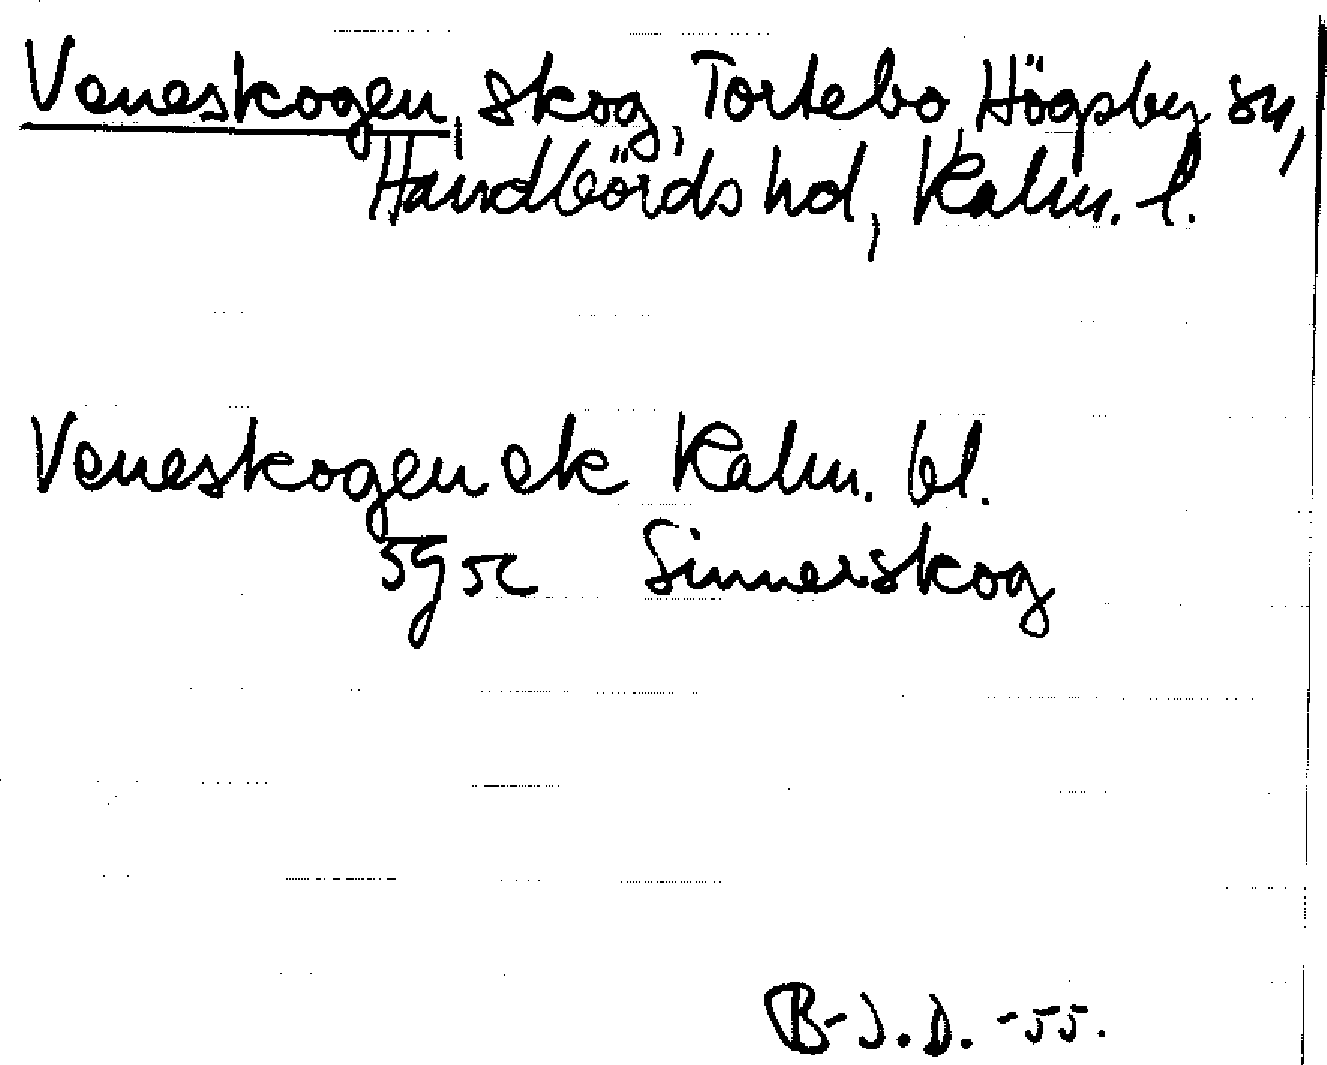 Veneskogen, skog, Tortebo, Högsby sn,
Handbörds hd, Kalm. l.
Veneskogen ek Kalm. bl.
5g5c Sinnerskog
B-J.D. -55.